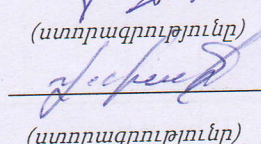 (ստորագրությունը)
(ստորագրությունը)